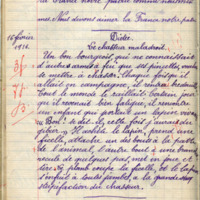 mes. Nous devons aimer la France notre patrie
15 février
1916.
Dictée.
Le chasseur maladroit.
Un bon bourgeois, qui ne connaissait
d'autres armes que ses pincettes, voulut
se mettre à chasser. Chaque fois qu'il
allait en campagne, il
tout le monde le raillait. Certain jour
qu'il revenait bien fatigué, il rencontre
un enfant qui portait un lapin vivant
"Bon! a dit-il, cette fois j'aurai du
gibier." Il achète le lapin, prend une
ficelle, attache un des bouts à la patte
de l'animal, l'autre bout à une
recule de quelques pas, met en joue et
tire: le plomb coupe la ficelle, et le lapin
s'enfuit à toutes jambes à la grande
stupéfaction du chasseur.